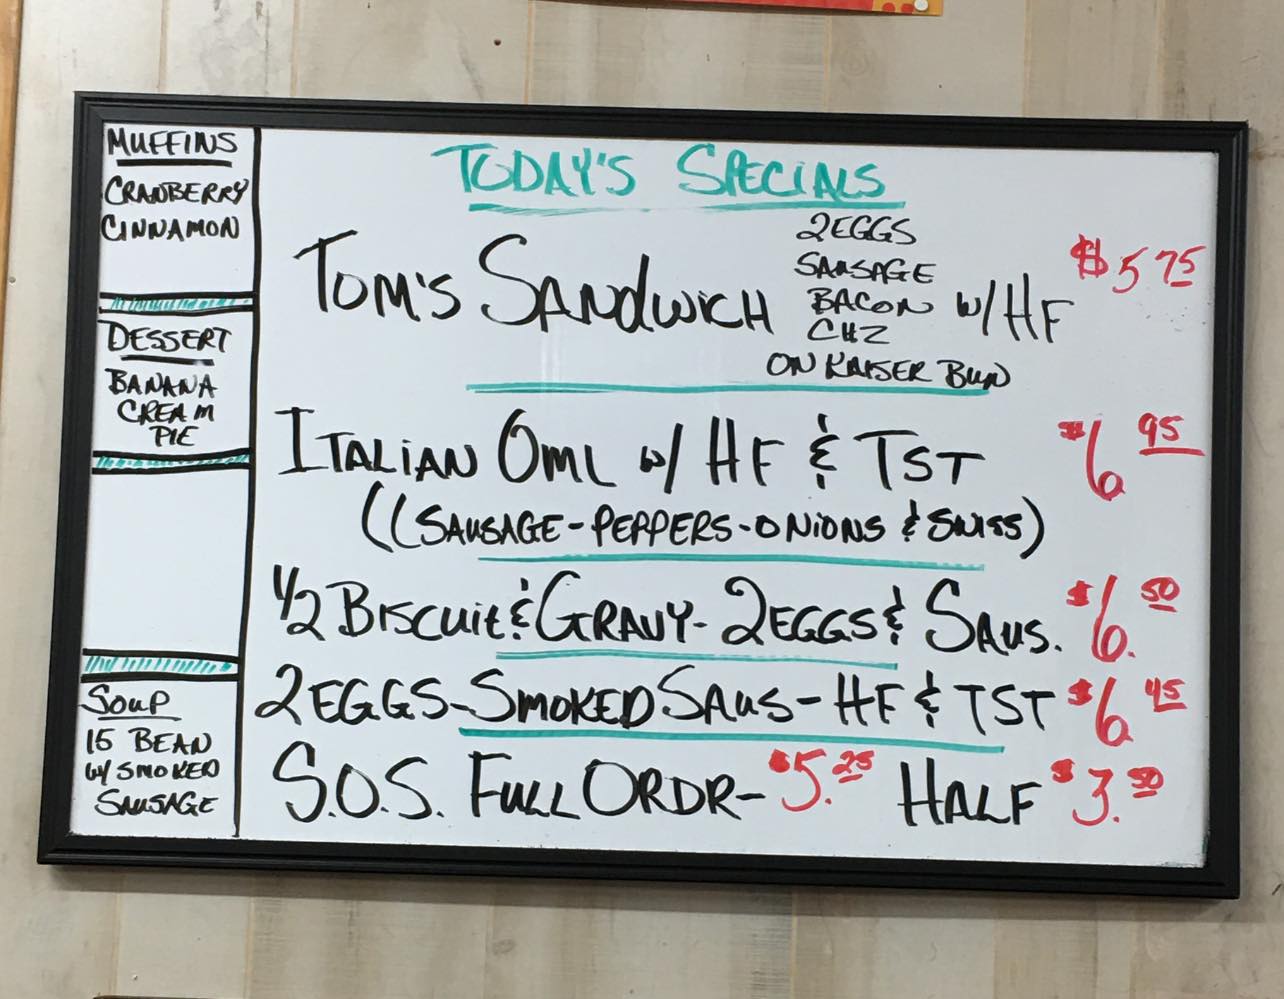 MUFFINS
CRANBERRY
CINNAMON
DESSERT
BANANA
CREAM
PIE
SOUP
15 BEAN
W/ SMOKED
SAUSAGE
TODAY'S SPECIALS
TOM'S SANDWICH
2EGGS
SAUSAGE
BACON
CHZ
ON KAISER BUN
W/ HF
$5.75
ITALIAN OML W/ HF & TST $6.95
((SAUSAGE-PEPPERS-ONIONS & SWISS)
1/2 BISCUIT & GRAVY- 2EGGS & SAUS. $6.50
2EGGS-SMOKED SAUS-HF & TST $6.45
S.O.S. FULL ORDR- $5.25 HALF $3.50